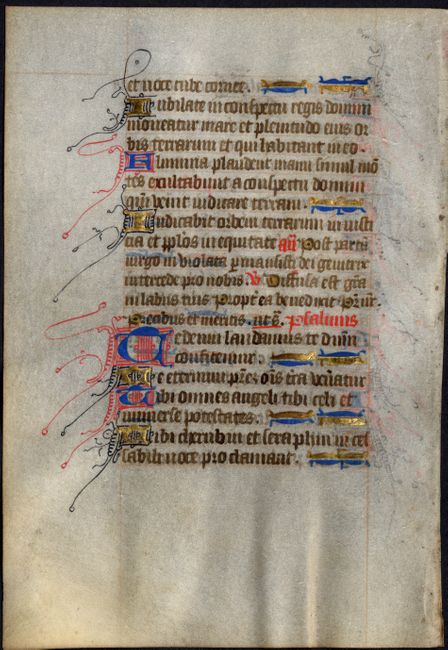 et voce tube cornee.
Iubilate in conspectu regis domini
moveatur mare et plenitudo eius or
bis terrarum et qui habitant in eo.
Flumina plaudent manu simul mo
tes exultabunt a conspectu domini
qm venit iudicare terram.
Iudicabit orbem terrarum in iusti
cia et pplos in equitate añ Post partu
virgo inviolata pmansisti dei genitrix
intercede pro nobis. V Diffusa est gra
in labiis tuis Propt ea benedixit
Precibus et meritis. Psalmus
Te deum laudamus te dnm
confitemur.
Te eternum pres ois tra venatur
Tibi omnes angeli tibi celi et
universe potestates.
Tibi cherubin et seraphim in ces
sabili voce proclamant.